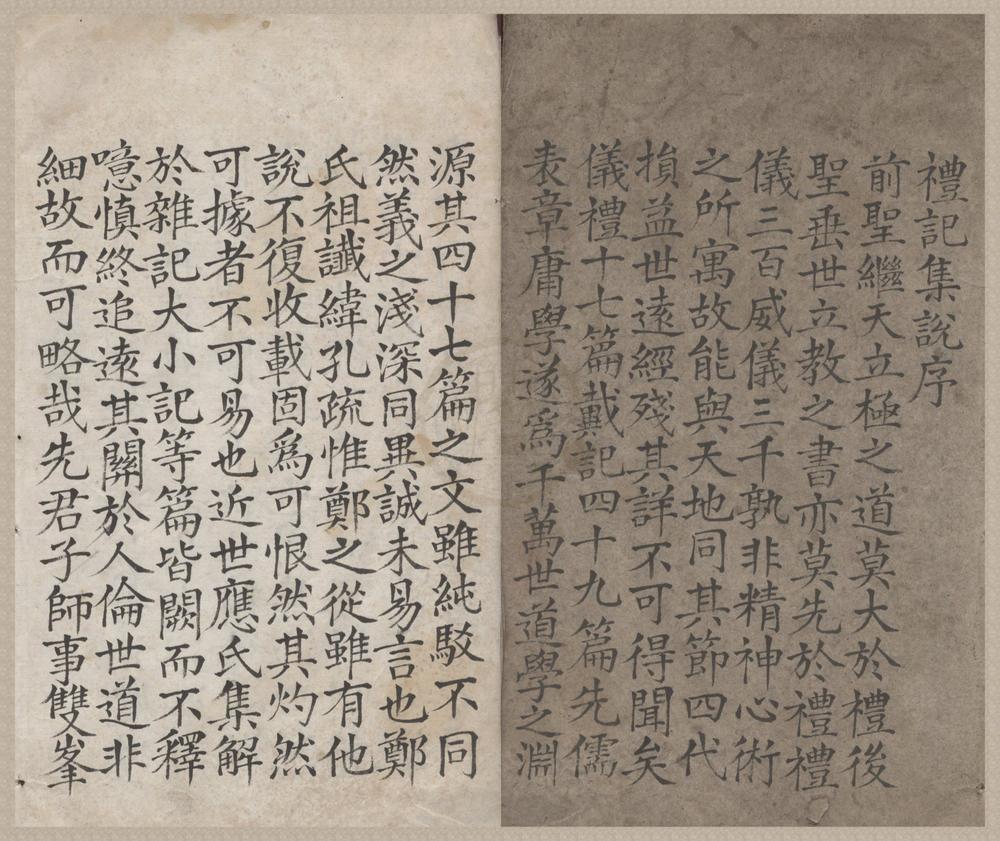 禮記集說序
前聖繼天立極之道莫大於禮後
聖垂世立教之書亦莫先於禮禮
儀三百威儀三千孰非精神心術
之所寓故能與天地同其節四代
損益世遠經殘其詳不可得聞矣
儀禮十七篇戴記四十九篇先儒
表章庸學遂爲千萬世道學之淵
源其四十七篇之文雖純駁不同
然義之淺深同異誠未易言也鄭
氏祖讖緯孔疏惟鄭之從雖有他
說不復收載固爲可恨然其灼然
可據者不可易也近世應氏集解
於雜記大小記等篇皆闕而不釋
噫慎終追遠其關於人倫世道非
細故而可略哉先君子師事雙峯